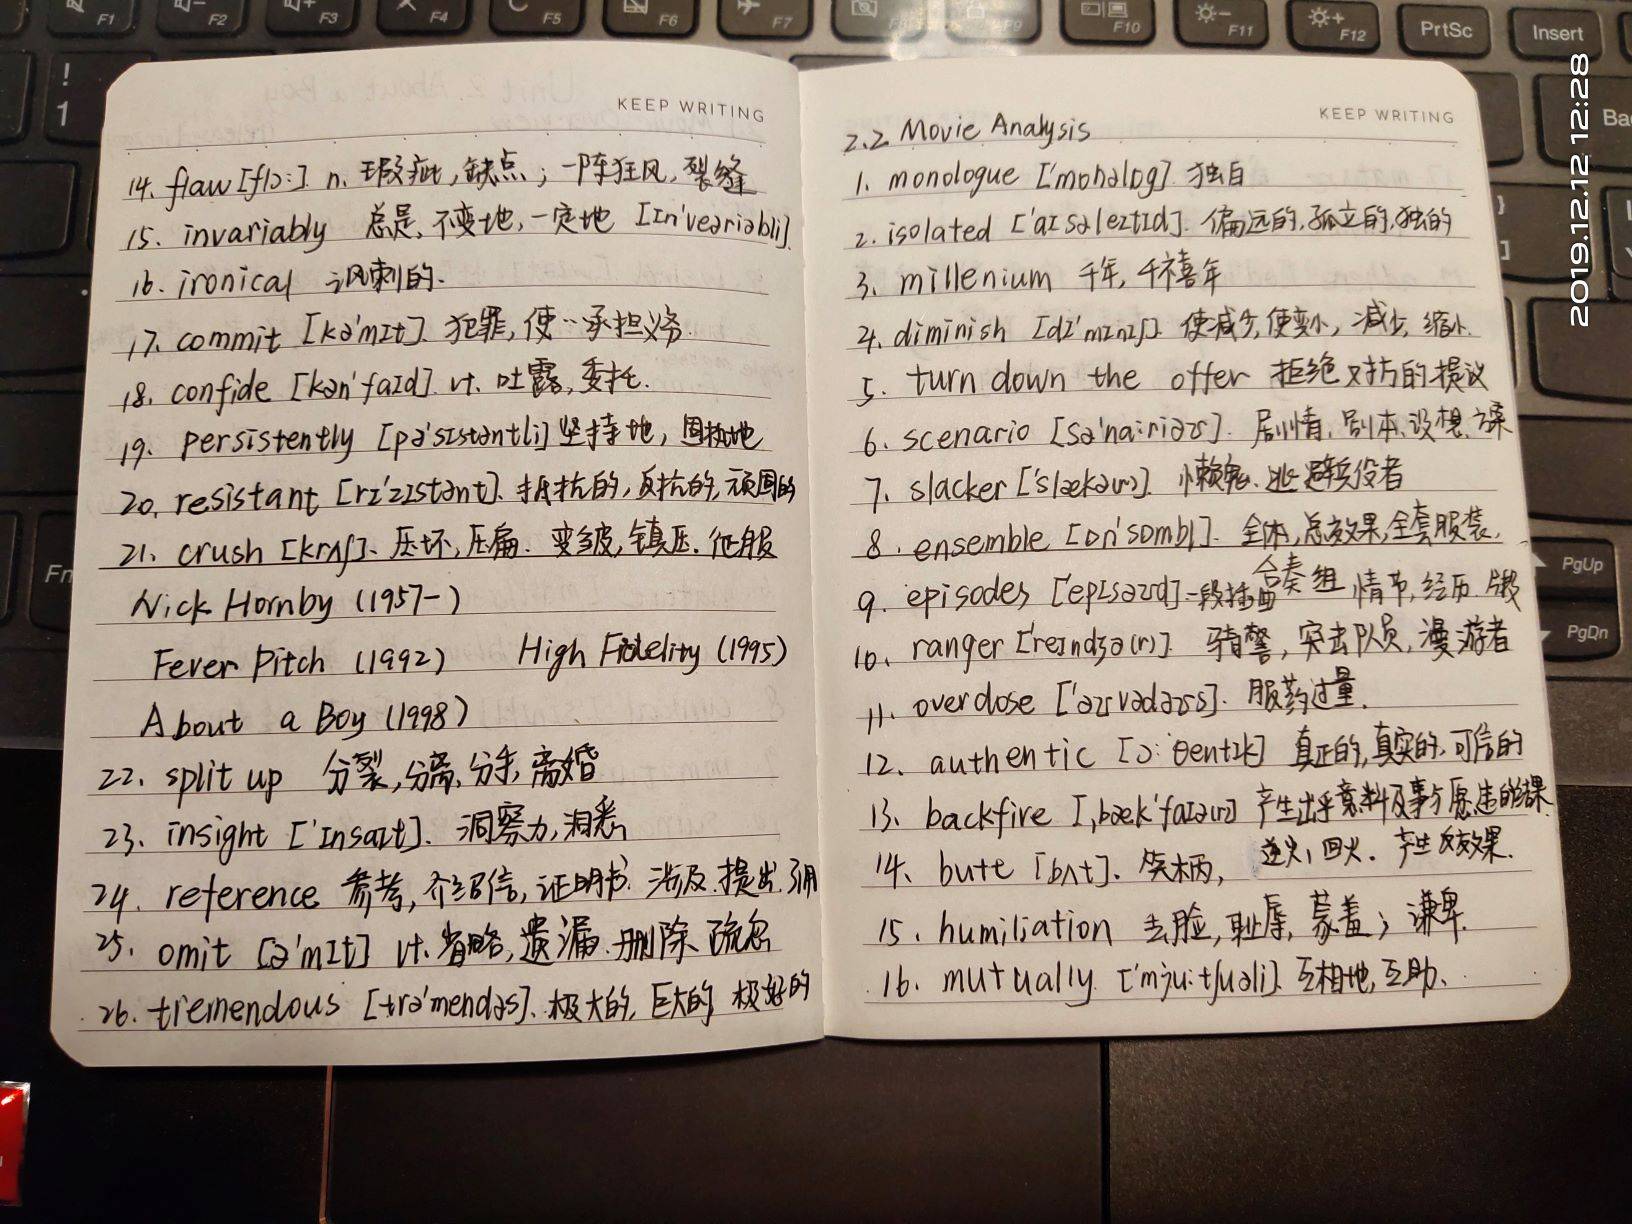 KEEP WRITING
14. flaw [flɔ:]. n. 瑕疵,缺点; 一阵狂风,裂缝
15. invariably 总是,不变地,一定地 [ɪn'veəriəbli].
16. ironical 讽刺的.
17. commit [kə'mɪt]. 犯罪,使…承担义务.
18. confide [kən'faɪd]. vt. 吐露,委托.
19. persistently [pə'sɪstəntli] 坚持地, 固执地
20. resistant [rɪ'zɪstənt]. 抵抗的,反抗的,顽固的
21. crush [krʌʃ]. 压坏,压扁. 变皱,镇压.
Nick Hornby (1957-)
Fever Pitch (1992) High Fidelity (1995)
About a Boy (1998)
22. split up 分裂,分离,分手,离婚
23. insight ['ɪnsaɪt]. 洞察力,洞悉
24. reference 参考,介绍信,证明书. 涉及.提出.引用
25. omit [ə'mɪt] vt.省略,遗漏.删除.疏忽
26. tremendous [trə'mendəs]. 极大的,巨大的,极好的
KEEP WRITING
2.2 Movie Analysis
1. monologue ['mɒnəlɒg]. 独白
2. isolated ['aɪsəleɪtɪd]. 偏远的,孤立的,独的
3. millenium 千年,千禧年
4. diminish [dɪ'mɪnɪʃ]. 使减少,使变小, 减少, 缩小.
5. turn down the offer 拒绝对方的提议
6. scenario [sə'na:riəʊ]. 剧情.剧本.设想.方案
7. slacker ['slækə(r)]. 懒鬼. 逃避兵役者
8. ensemble [ɒn'sɒmbl]. 全体,总效果,全套服装,
合奏组
9. episodes ['epɪsəʊd]. 一段插曲 情节,经历.片段
10. ranger ['reɪndʒə(r)]. 骑警,突击队员,漫游者
11. overdose ['əʊvədəʊs]. 服药过量.
12. authentic [ɔ:'θentɪk] 真正的,真实的,可信的
13. backfire [ˌbæk'faɪə(r)] 产生出乎意料及事与愿违的结果
逆火,回火. 产生反效果.
14. bute [bʌt]. 笑柄,
15. humiliation 丢脸,耻辱, 蒙羞; 谦卑.
16. mutually ['mju:tʃuəli]. 互相地,互助.
2019.12.12 12:28